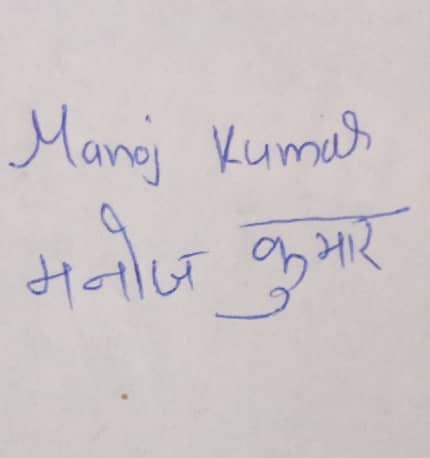 Manoj Kumar
मनोज कुमार